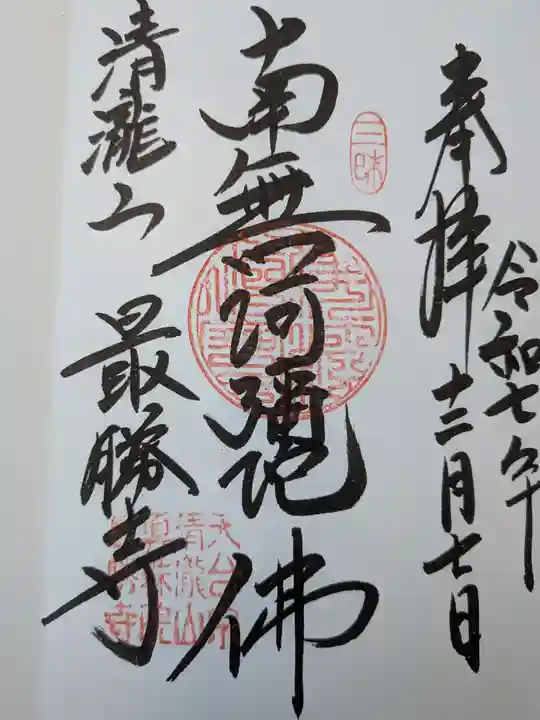 奉拝
令和七年
十二月七日
三昧
南無阿彌陀佛
清瀧山
最勝寺
天台宗
清瀧山